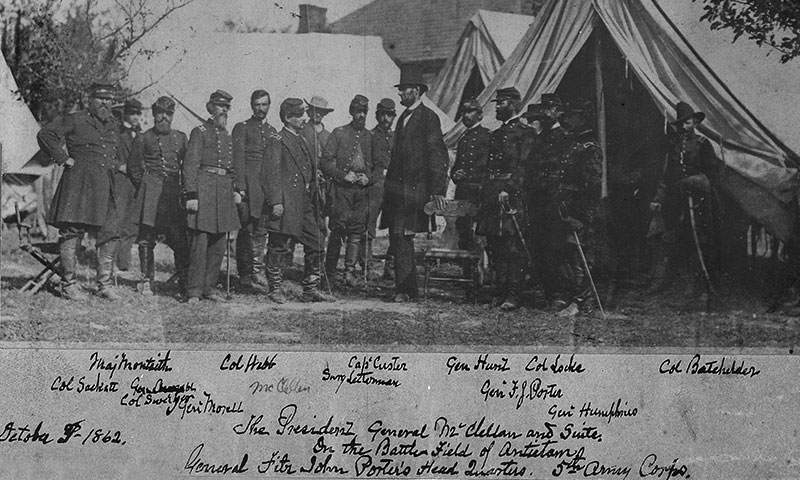 Maj Monteith Col Webb Capt Custer Gen Hunt Col Locke Col Batchelder
Col Sackett Gen McClellan Surg Letterman Gen F. J. Porter
Col Sweitzer
Gen Morell Gen Humphries
October 1862.
The President General McClellan and Suite.
On the Battle Field of Antietam
General Fitz John Porter's Head Quarters. 5th Army Corps.